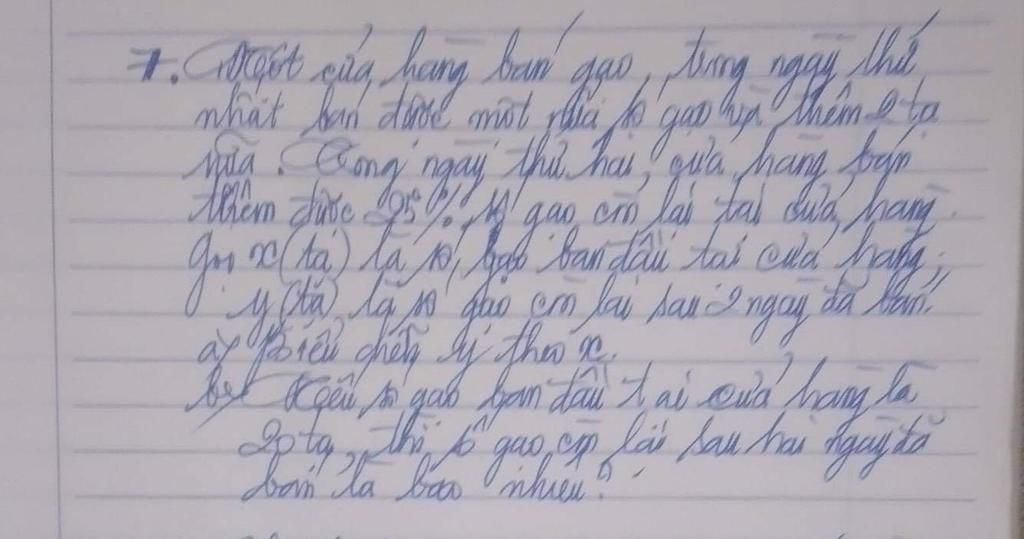 7. Một cửa hàng bán gạo, trong ngày thứ
nhất bán được một nửa số gạo và thêm 2 tạ
nữa. Trong ngày thứ hai, cửa hàng bán
thêm được 25% số gạo còn lại tại cửa hàng.
Gọi x (tạ) là số gạo ban đầu tại cửa hàng;
y (tạ) là số gạo còn lại sau 2 ngày đã bán.
a) Biểu diễn y theo x.
b) Nếu số gạo ban đầu tại cửa hàng là
20 tạ, thì số gạo còn lại sau hai ngày đã
bán là bao nhiêu?